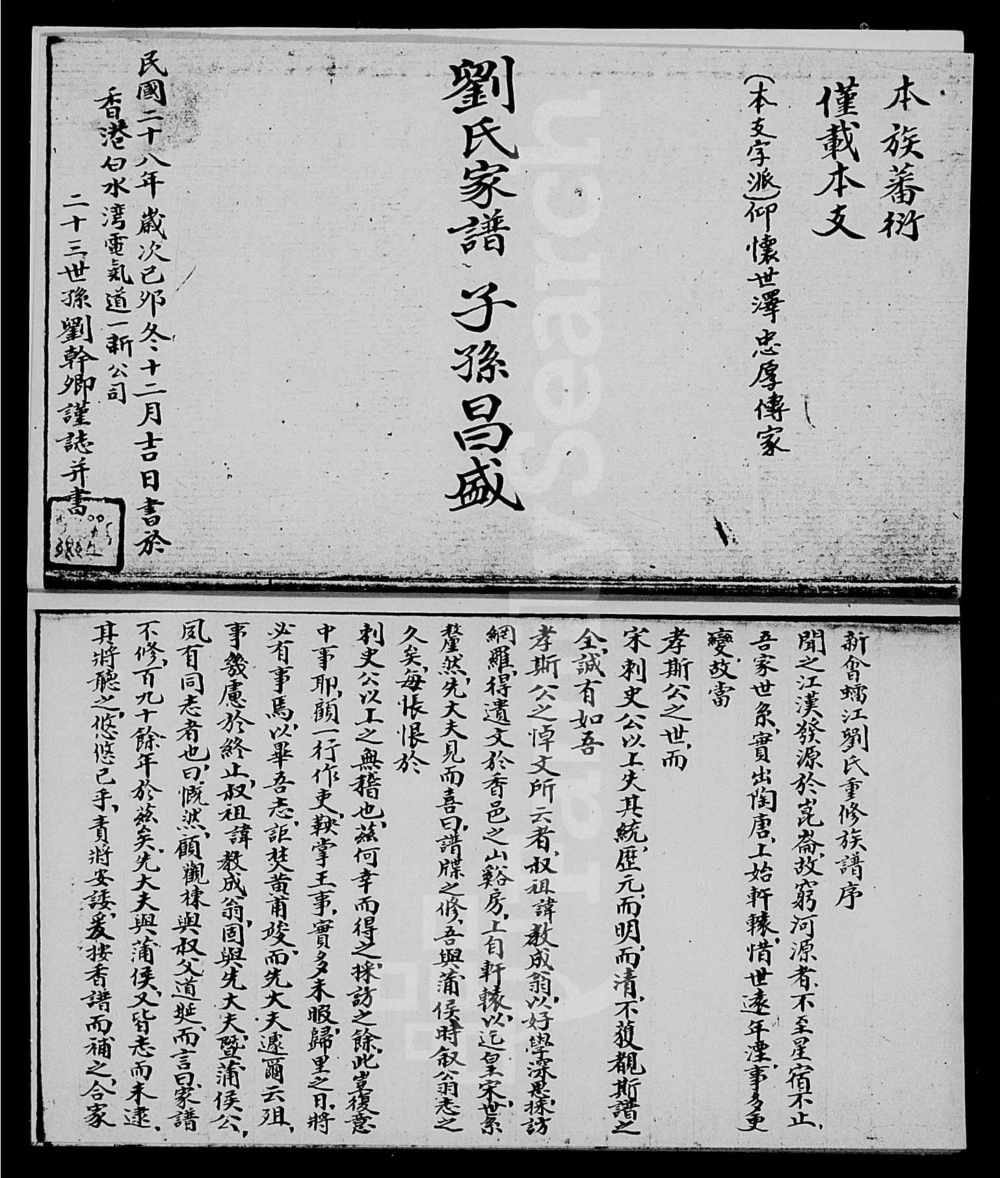 本族蕃衍
僅載本支
(本支字派)仰懷世澤忠厚傳家
劉氏家譜 子孫昌盛
民國二十八年歲次己夘冬十二月吉日書於
香港白水湾電氣道一新公司
二十三世孫劉幹卿謹誌并書
新會蠕江劉氏重修族譜序
聞之江漢發源於崑崙故窮河源者不至星宿不止
吾家世系實出陶唐上始軒轅惜世遠年湮事多更
變故當
孝斯公之世而
宋刺史公以上失其統歷元而明而清不獲覩斯譜之
全誠有如吾
孝斯公之悼文所云者叔祖諱教成翁以好學深思採訪
網羅得遺文於香邑之山谿房上自軒轅以迄皇宋世系
釐然先大夫見而喜曰譜牒之修吾與蒲侯時叙公翁志之
久矣每悵恨於
刺史公以上之無稽也茲何幸而得之採訪之餘此豈復意
中事耶顧一行作吏鞅掌王事實多未暇歸里之日將
必有事焉以畢吾志詎焚黄甫竣而先大夫遽爾云殂
事幾慮於終止叔祖諱教成翁固與先大夫暨蒲侯公
夙有同志者也曰慨然顧觀棟與叔父道鋋而言曰家譜
不修百九十餘年於茲矣先大夫與蒲侯又皆志而未逮
其將聽之悠悠已乎責將安諉爰按香譜而補之合家